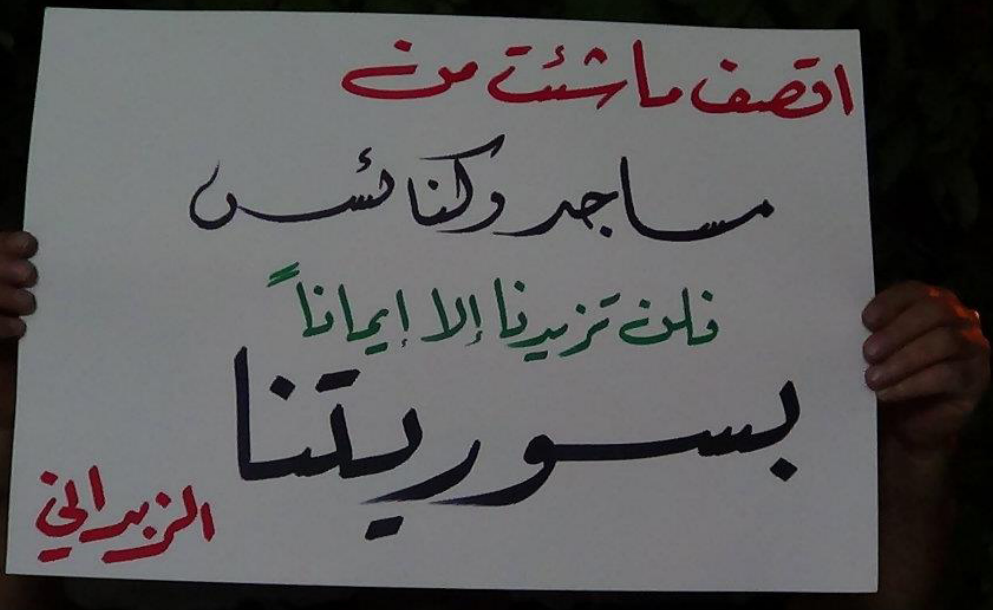 اقصف ما شئت من
مساجد وكنائس
فلن تزيدنا إلا إيماناً
بسوريتنا
الزبداني